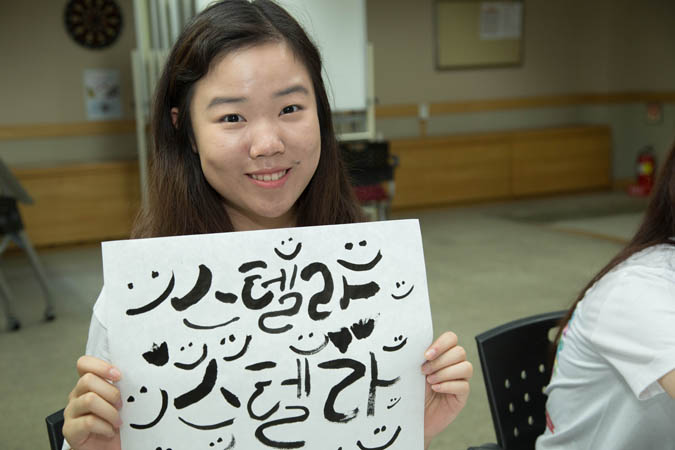 스텔라
스텔라